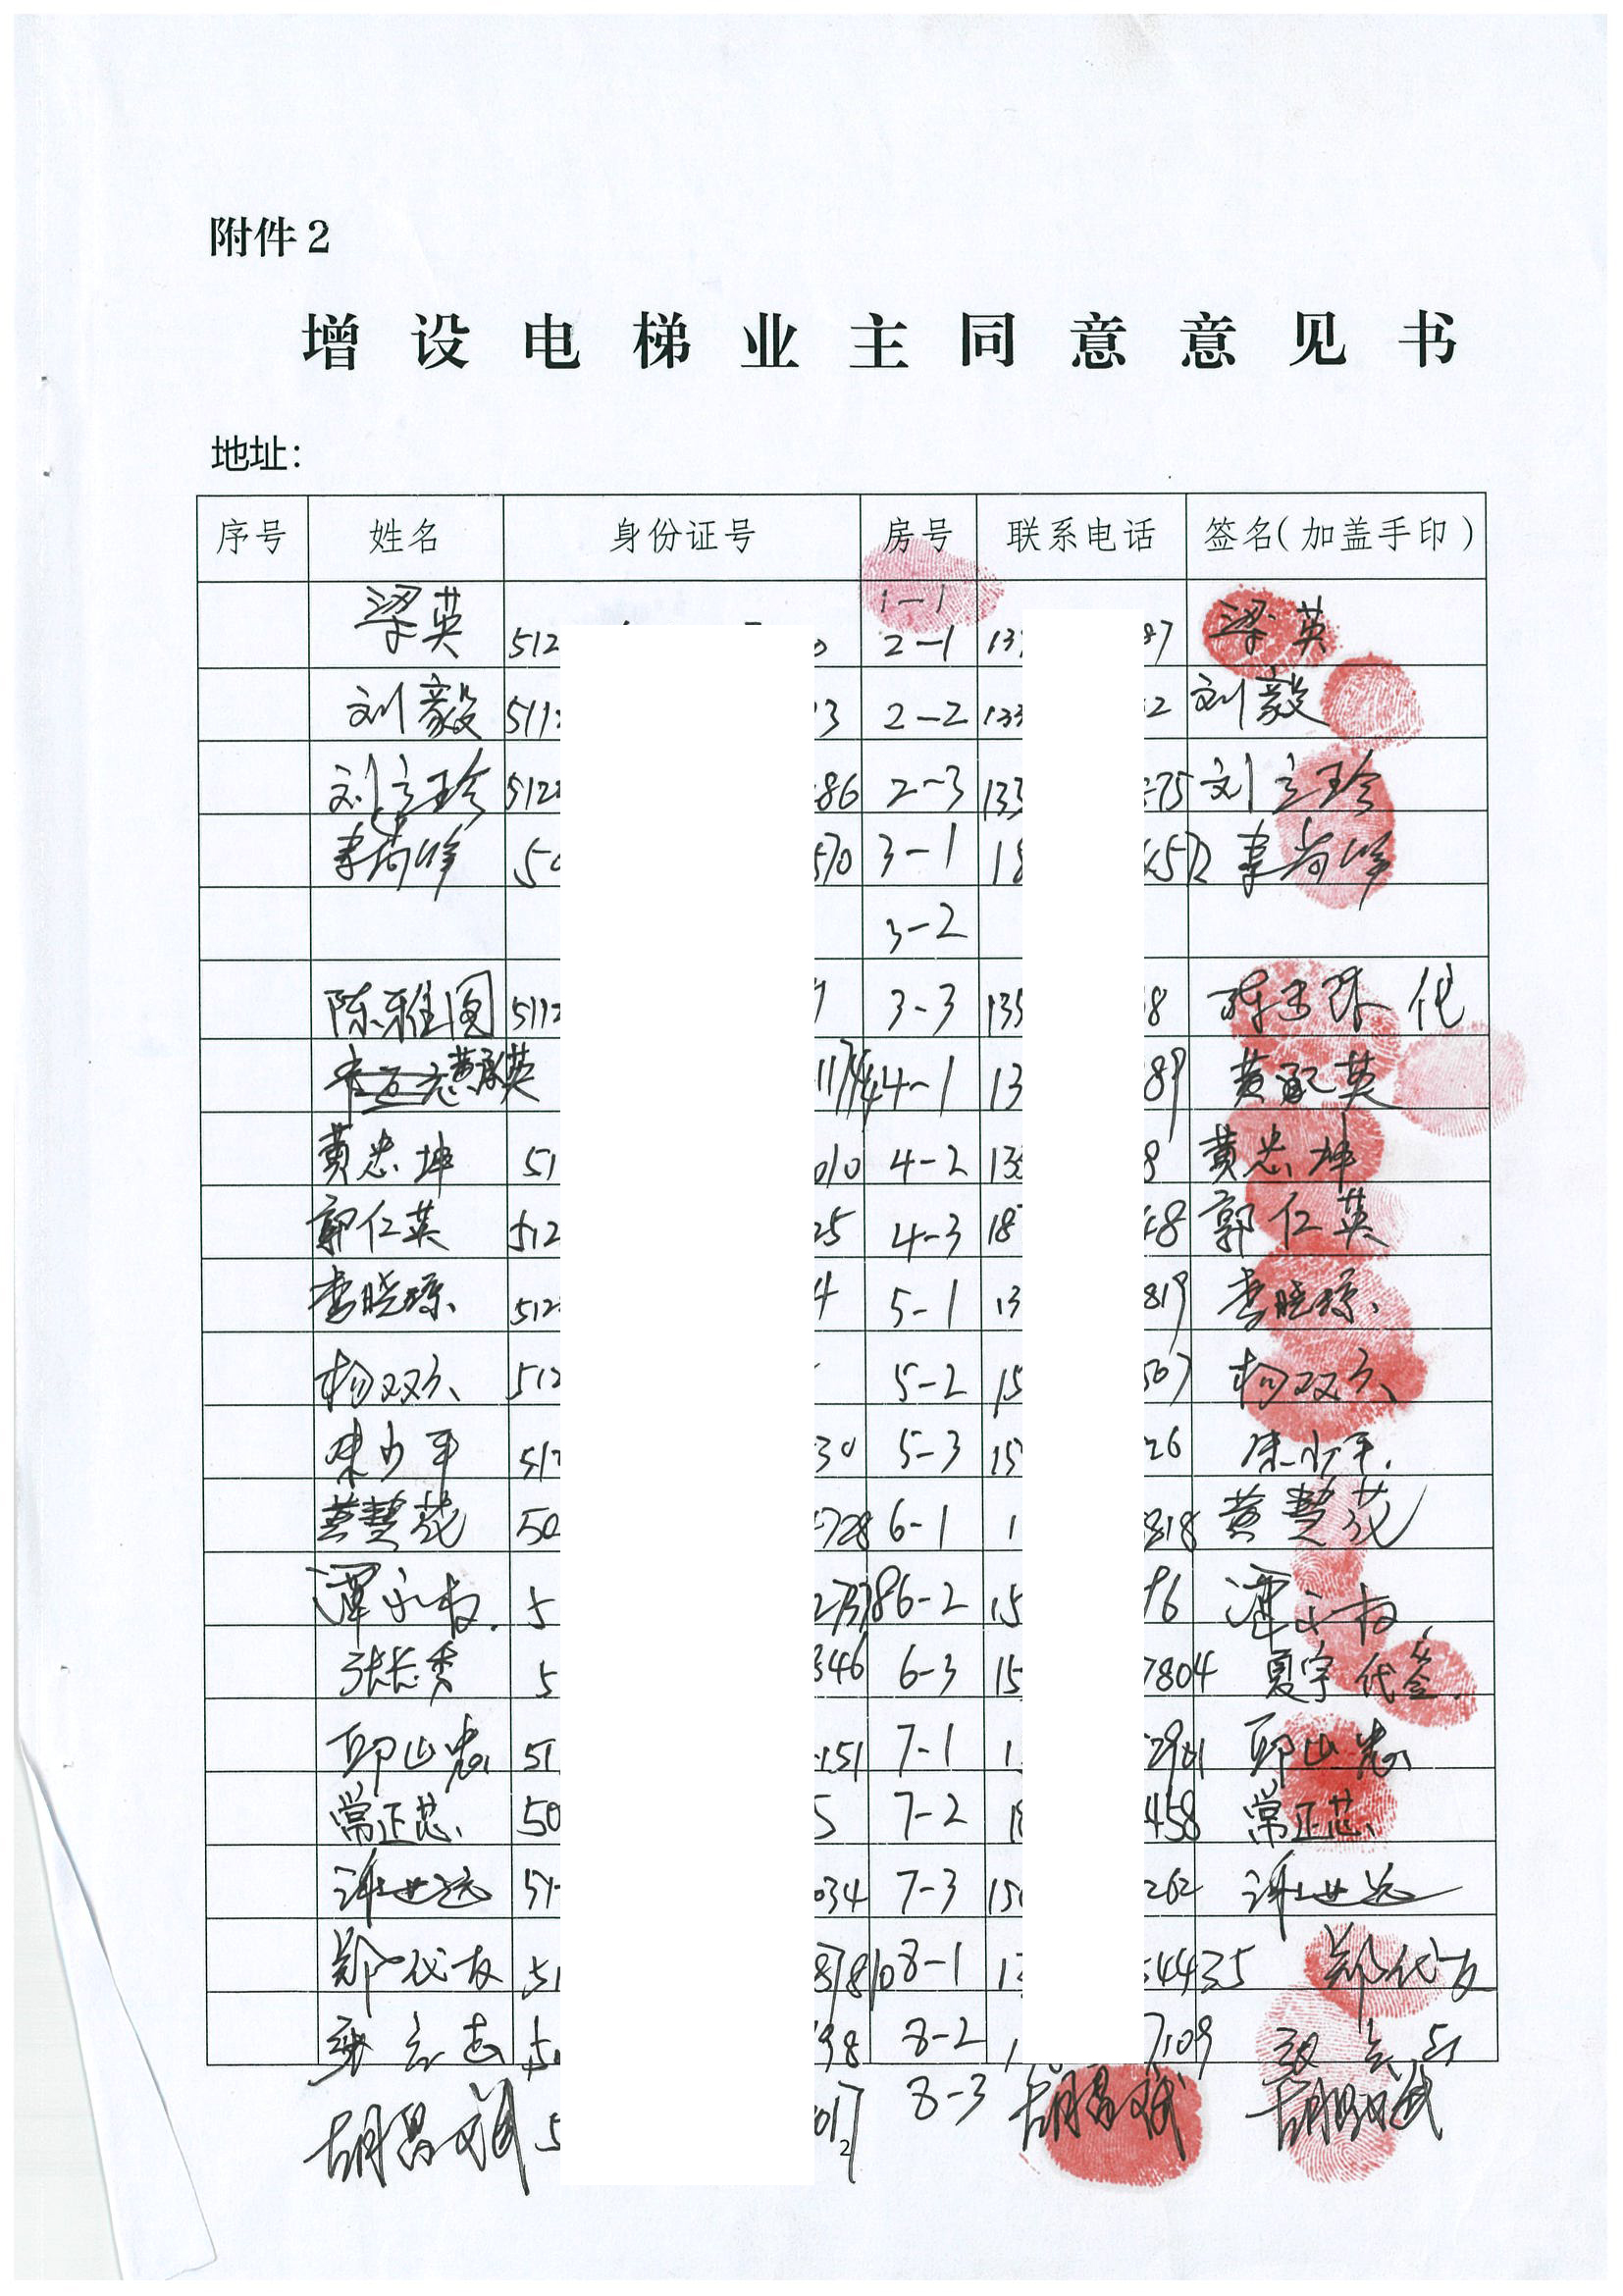 附件2
增设电梯业主同意意见书
地址：
序号 姓名 身份证号 房号 联系电话 签名（加盖手印）
1-1
梁英 512 0 2-1 137 87 梁英
刘毅 511 3 2-2 133 2 刘毅
刘立珍 512 86 2-3 133 75 刘立珍
李尚 50 570 3-1 18 457 李尚
3-2
陈雅图 5112 3-3 135 8 陈 代
黄承英 1174 4-1 13 89 黄承英
黄忠坤 51 010 4-2 133 8 黄忠坤
郭仁英 512 25 4-3 18 48 郭仁英
李晓琼 512 4 5-1 13 819 李晓琼
杨双六 512 5-2 15 507 杨双六
陈少平 512 30 5-3 15 26 陈少平
黄慧花 50 728 6-1 1 818 黄慧花
谭永 5 27 6-2 15 96 谭永
张长秀 5 346 6-3 15 7804 夏宇代签
邱山忠 51 151 7-1 1 邱山忠
常正芯 50 5 7-2 18 458 常正芯
谭世远 51 034 7-3 150 262 谭世远
郑代友 51 8-1 1 54435 郑代友
50 98 8-2 1 7109
胡昌斌 5 017 8-3 胡昌斌 胡昌斌